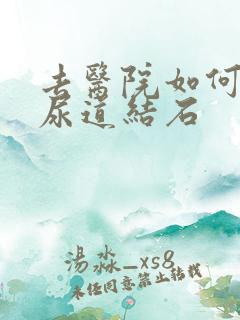 去醫院如何
尿道結石
湯淼_xs8
未经同意禁止转载